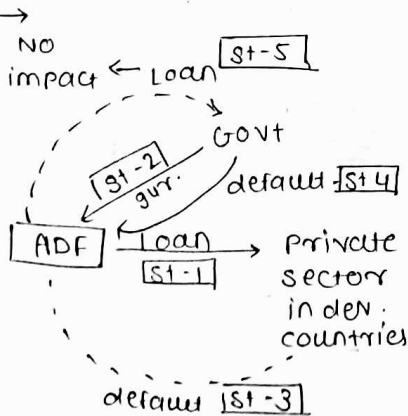 →
NO
impact ← Loan St-5
Govt
St-2
gur.
default St 4
ADF
Loan
St-1
→ private
sector
in dev.
countries
default St-3